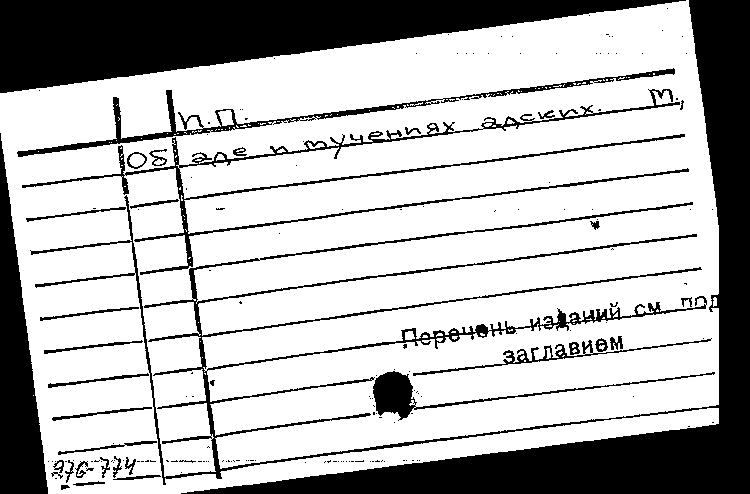 П.П.
Об аде и мучениях адских. М.,
Перечень изданий см. под
заглавием
276-774